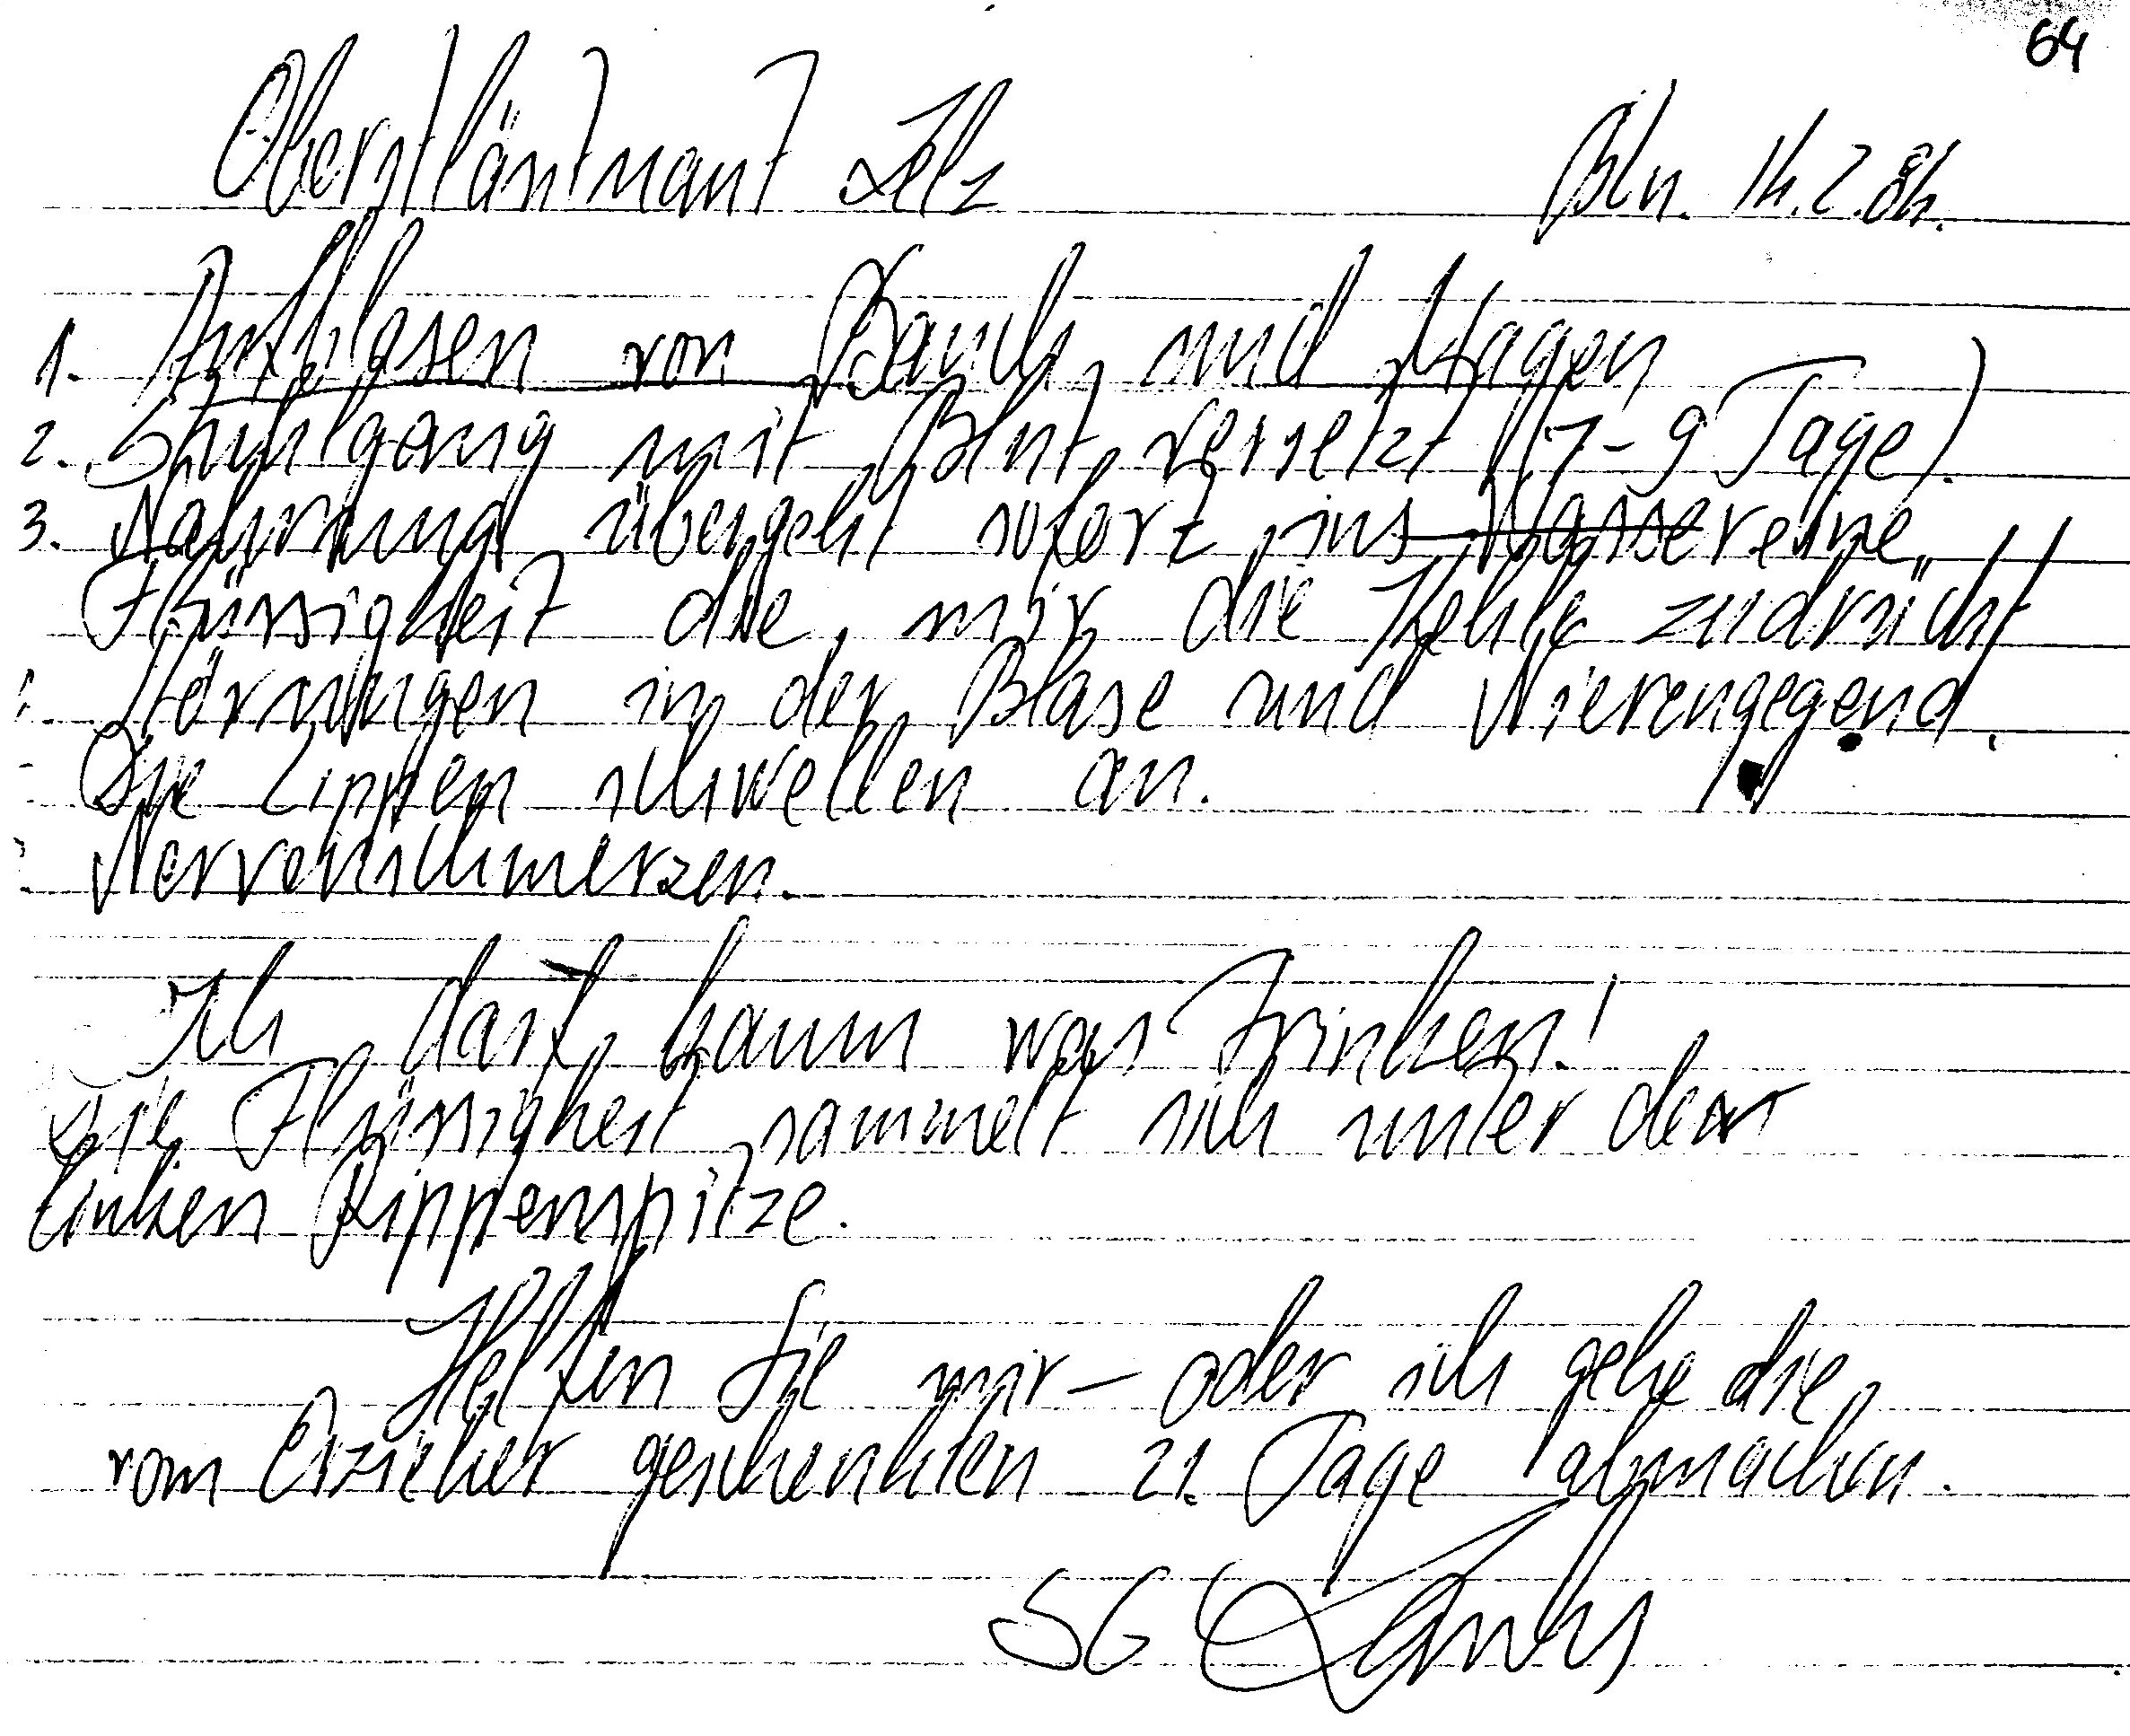 64
Oberstläutnant Zelz
Bln. 14.2.84.
1. Aufblasen von Bauch und Magen
2. Stuhlgang mit Blut versetzt (7-9 Tage).
3. Nahrung übergeht sofort ins Wasser eine
Flüssigkeit die mir die Kehle zudrückt!
Störungen in der Blase und Nierengegend!
Die Lippen schwellen an.
Nervenschmerzen.
Ich darf kaum was Trinken!
Die Flüssigkeit sammelt sich unter der
linken Rippenspitze.
Helfen Sie mir – oder ich gehe die
vom Erzieher geschenkten 21. Tage abmachen.
SG